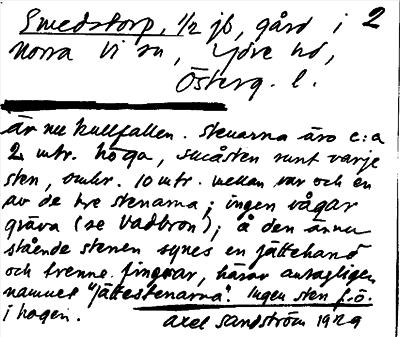 Smedstorp, 1/2 jb, gård i 2
Norra Vi sn, Ydre hd,
Österg. l.
är nu kullfallen. Stenarna äro c:a
2 mtr. höga, småsten runt varje
sten, omkr. 10 mtr. mellan var och en
av de tre stenarna; ingen vågar
gräva (se Vadbron); å den ännu
stående stenen synes en jättehand
och trenne fingrar, härav antagligen
namnet "jättestenarna". Ingen sten f.ö.
i hagen. Axel Sandström 1929